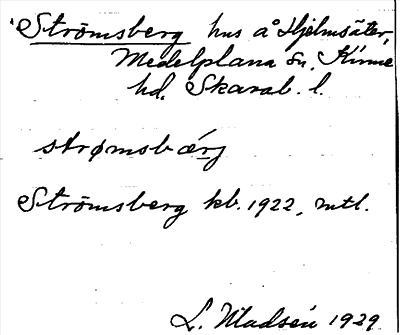 Strömsberg hus å Hjelmsäter,
Medelplana sn. Kinne
hd. Skarab. l.
strømsbærj
Strömsberg kb. 1922, mtl.
L. Madsén 1929